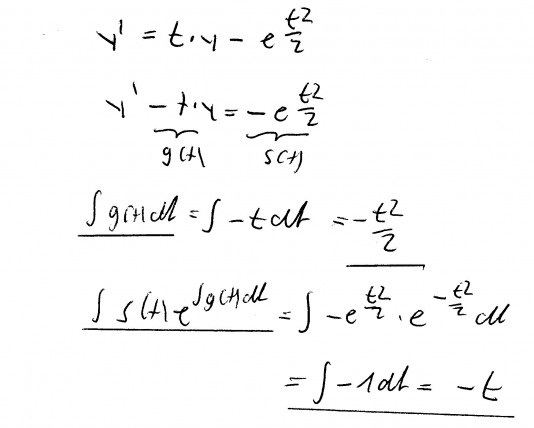 y' = t·y - e^(t²/2)
y' - t·y = -e^(t²/2)
g(t) s(t)
∫g(t)dt = ∫-t dt = -t²/2
∫s(t)e^(∫g(t)dt) = ∫-e^(t²/2) · e^(-t²/2) dt
= ∫-1dt = -t